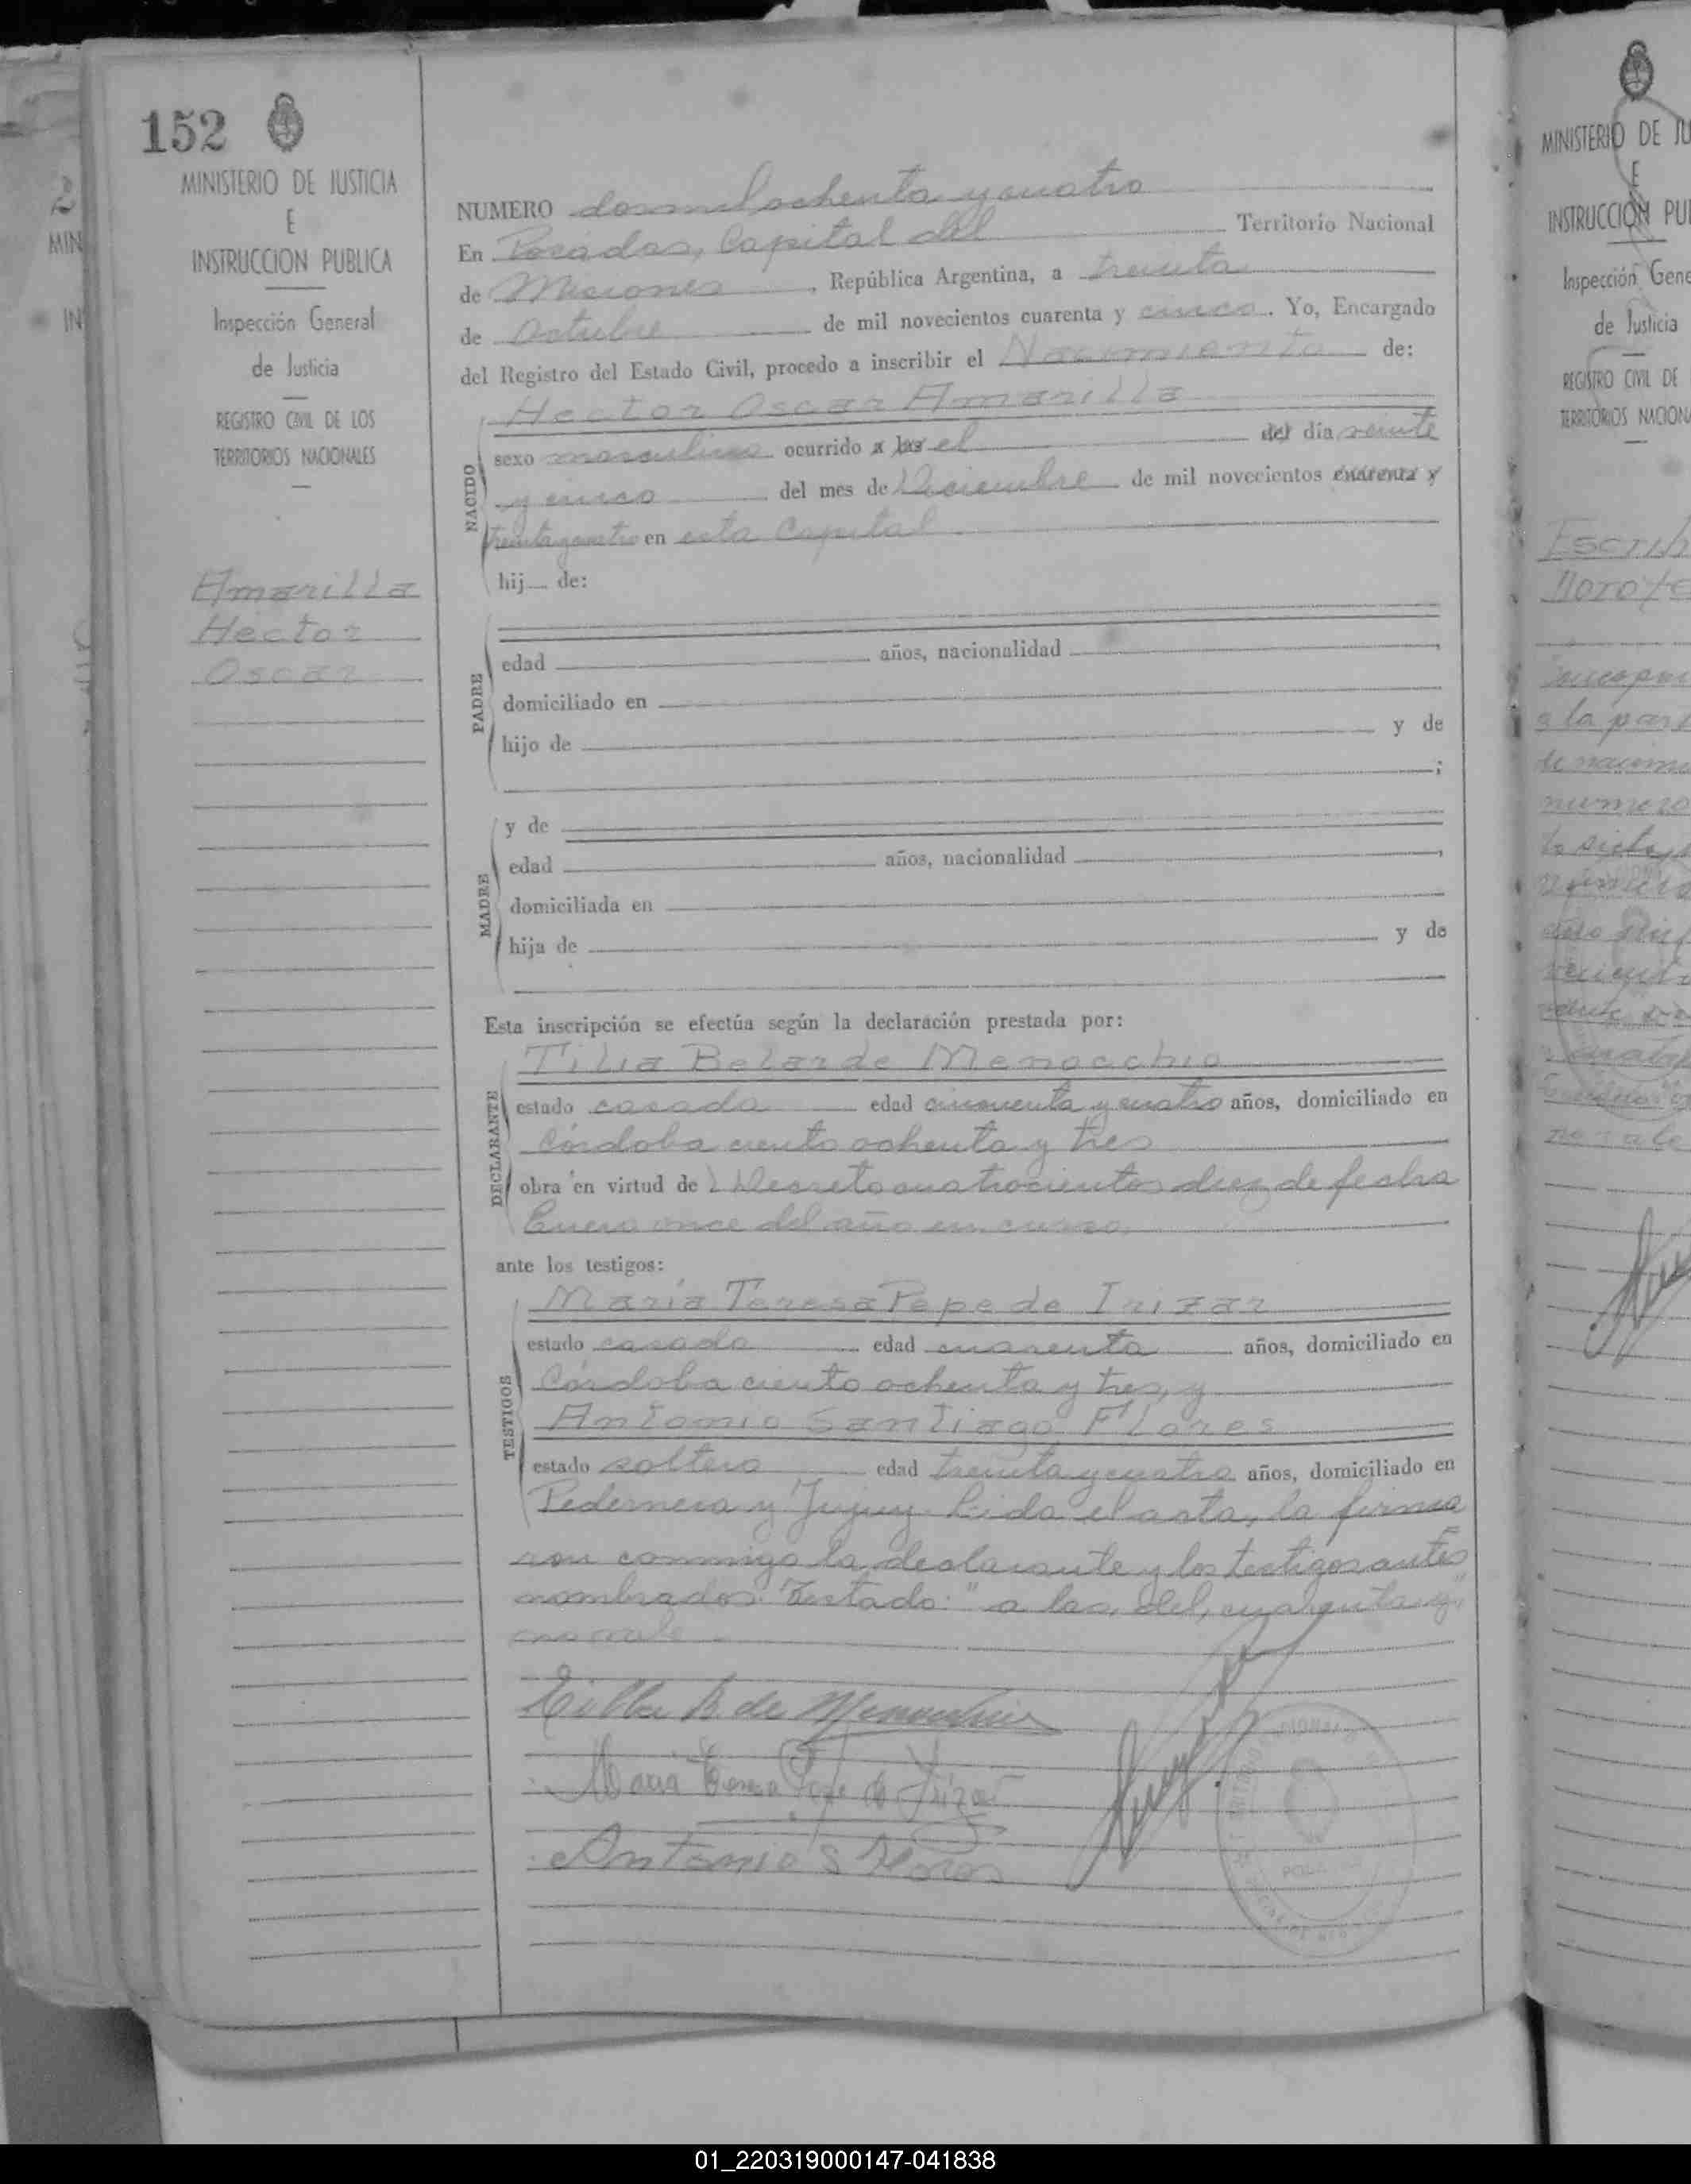 152
MINISTERIO DE JUSTICIA
E
INSTRUCCION PUBLICA
Inspección General
de Justicia
REGISTRO CIVIL DE LOS
TERRITORIOS NACIONALES
Amarilla
Hector
Oscar
NUMERO dos mil ochenta y cuatro
En Posadas, Capital del Territorio Nacional
de Misiones, República Argentina, a treinta
de Octubre de mil novecientos cuarenta y cinco. Yo, Encargado
del Registro del Estado Civil, procedo a inscribir el Nacimiento de:
NACIDO
Hector Oscar Amarilla
sexo masculino ocurrido a las el del día veinte
y cinco del mes de Diciembre de mil novecientos cuarenta y
treinta y cuatro en esta Capital
hij de:
PADRE
edad años, nacionalidad
domiciliado en
hijo de y de
;
MADRE
y de
edad años, nacionalidad
domiciliada en
hija de y de
Esta inscripción se efectúa según la declaración prestada por:
DECLARANTE
Tilia Belar de Menocchio
estado casada edad cincuenta y cuatro años, domiciliado en
Córdoba ciento ochenta y tres
obra en virtud de Decreto cuatrocientos diez de fecha
Enero once del año en curso.
ante los testigos:
TESTIGOS
María Teresa Pepe de Irizar
estado casada edad cuarenta años, domiciliado en
Córdoba ciento ochenta y tres, y
Antonio Santiago Flores
estado soltero edad treinta y cuatro años, domiciliado en
Pedernera y Jujuy. Leida el acta, la firma
ron conmigo la declarante y los testigos antes
nombrados. Testado: "a las, del, cuarenta y"
no vale
B de
Maria Teresa Pepe de Irizar
Antonio S Flores
MINISTERIO DE JU
E
INSTRUCCIÓN PU
Inspección Gene
de Justicia
REGISTRO CIVIL DE
TERRITORIOS NACION
a la par
numero
no vale
01_220319000147-041838